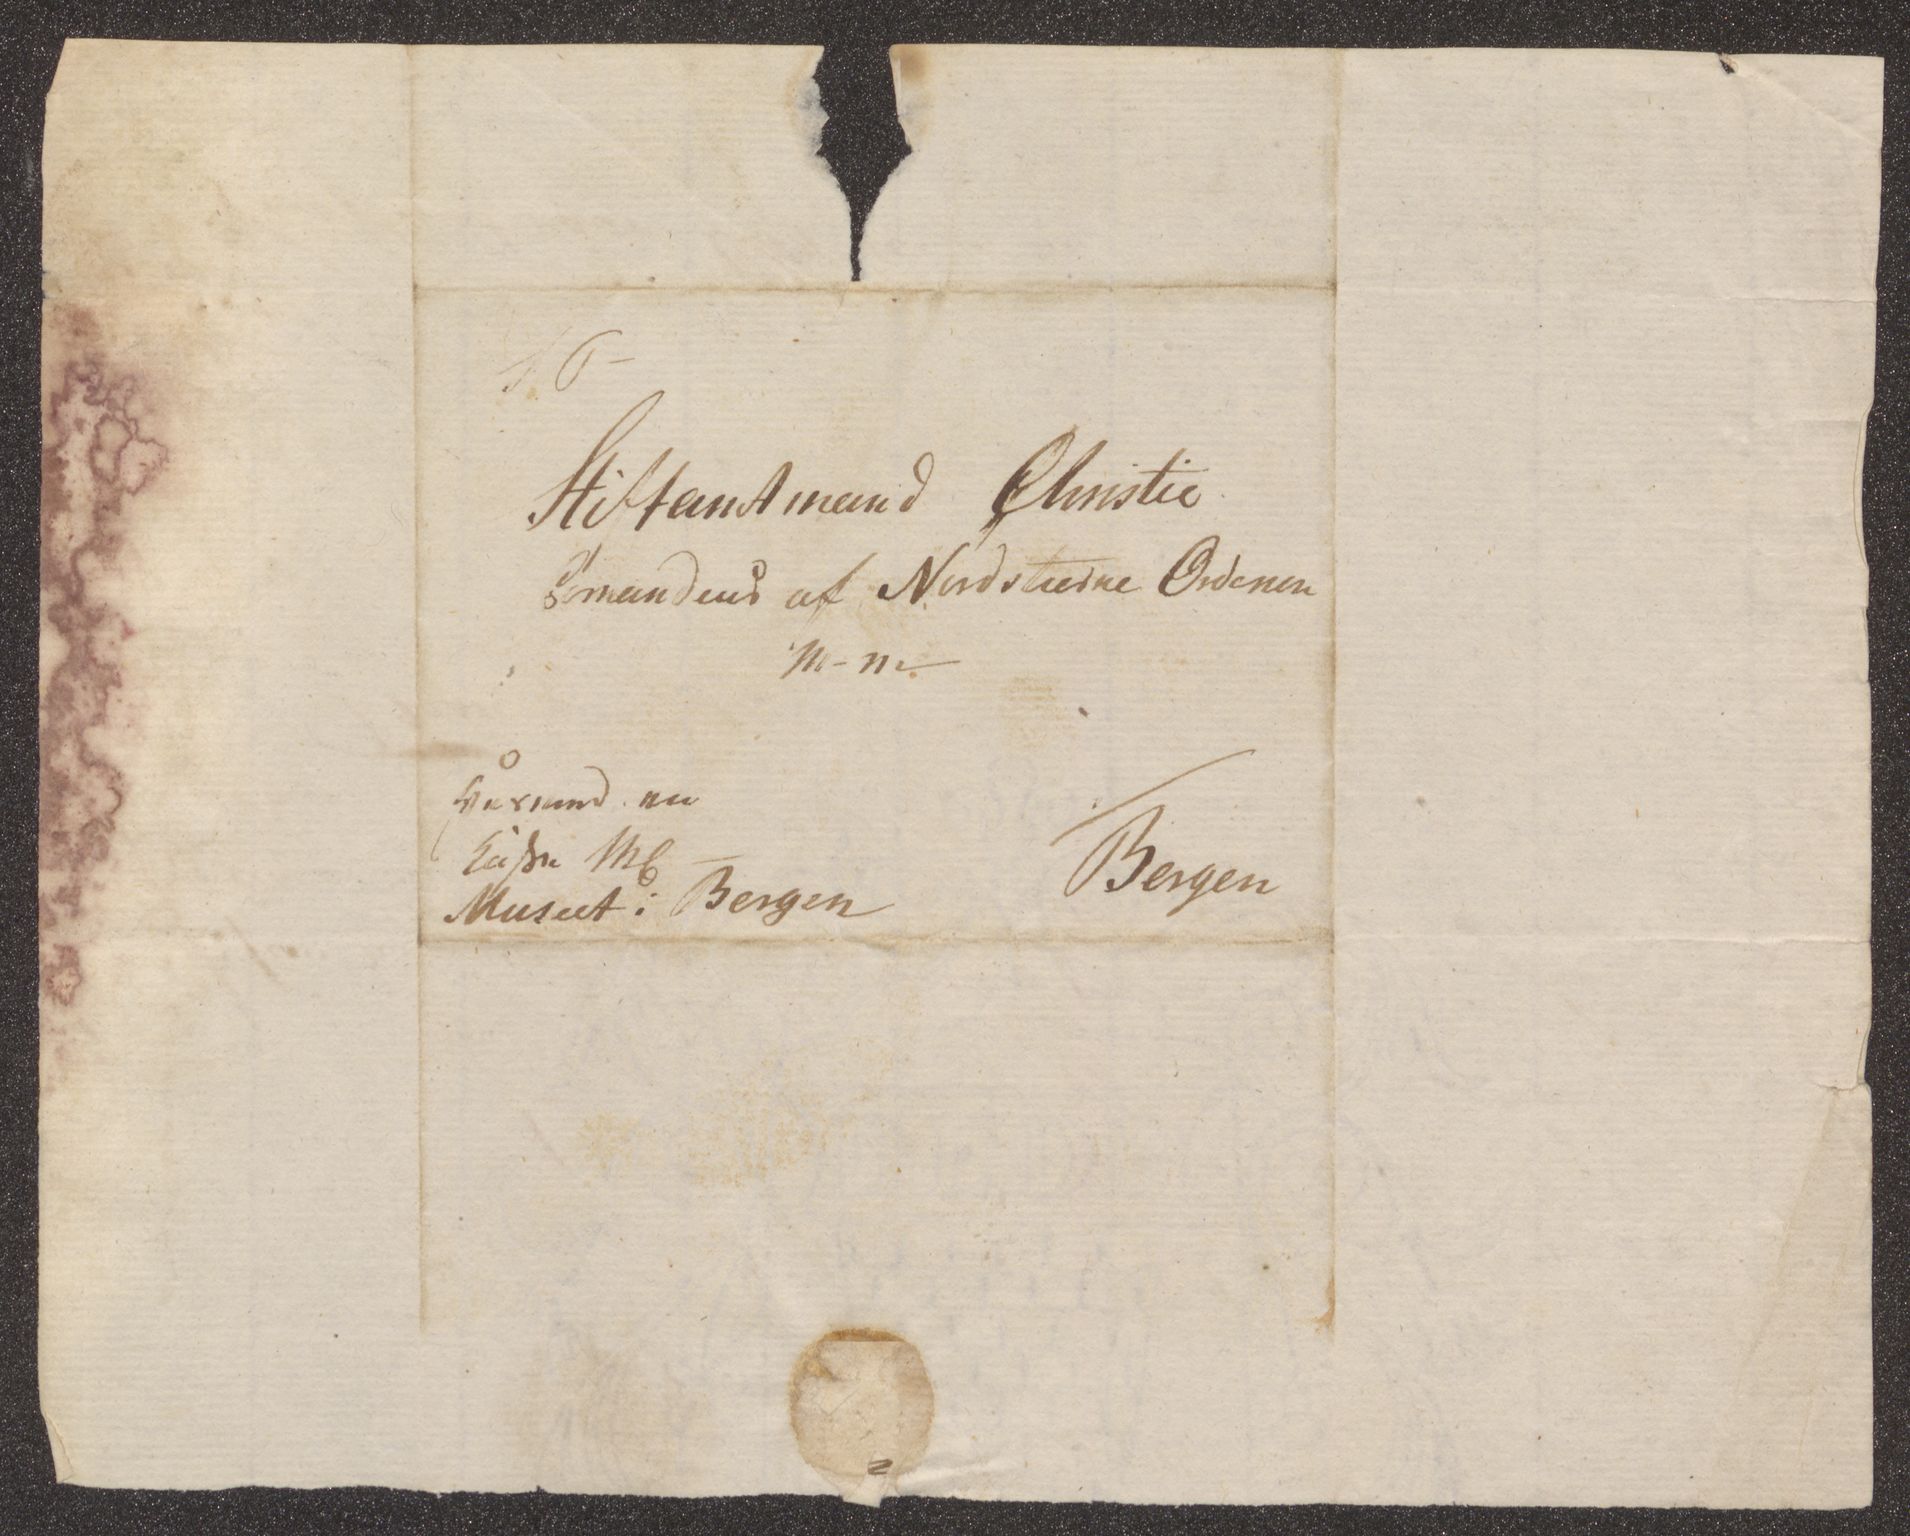 S. T.
Stiftamtmand Christie
Comandeur af Nordstierne Ordenen
m-m
Hermed en
Kasse MC
Museet i Bergen
Bergen